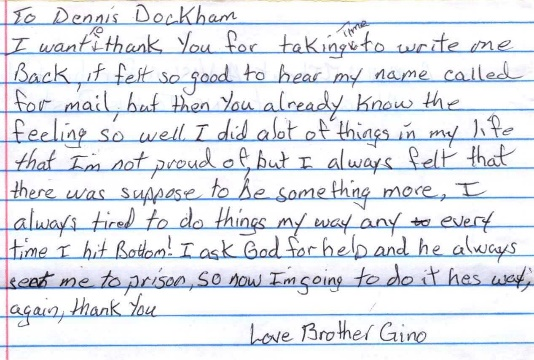 To Dennis Dockham
I want to thank You for taking time to write me
Back, it felt so good to hear my name called
for mail, but then You already know the
feeling so well. I did alot of things in my life
that I'm not proud of, but I always felt that
there was suppose to be something more, I
always tired to do things my way any to every
time I hit Bottom! I ask God for help and he always
sent me to prison, so now I'm going to do it hes way,
again, thank You
Love Brother Gino